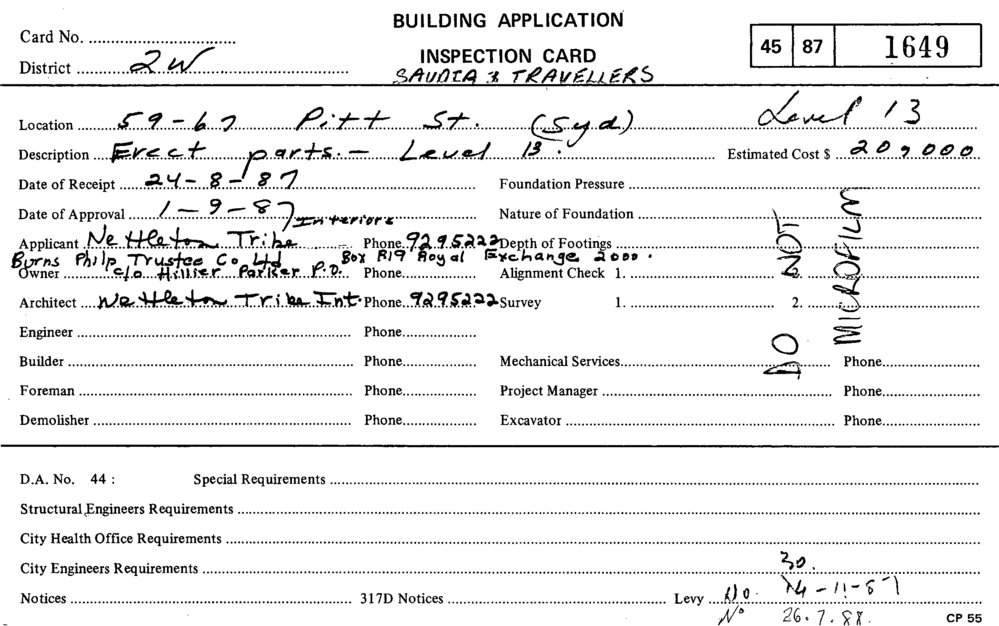 BUILDING APPLICATION
Card No.
INSPECTION CARD
45 87 1649
District 2W
SAUDIA & TRAVELLERS
Location 59-67 Pitt St. (Syd) Level 13
Description Erect parts. - Level 13. Estimated Cost $ 209000
Date of Receipt 24-8-87 Foundation Pressure
Date of Approval 1-9-87 Nature of Foundation
Interiors
Applicant Nettleton Tribe Phone 9295222 Depth of Footings
Burns Philp Trustee Co Ltd Box R19 Royal Exchange 2000.
Owner c/o Hillier Parker P.D. Phone Alignment Check 1. 2.
Architect Nettleton Tribe Int. Phone 9295222 Survey 1. 2.
DO NOT
MICROFILM
Engineer Phone
Builder Phone Mechanical Services Phone
Foreman Phone Project Manager Phone
Demolisher Phone Excavator Phone
D.A. No. 44 : Special Requirements
Structural Engineers Requirements
City Health Office Requirements
City Engineers Requirements
30.
Notices 317D Notices Levy No. -11-87
No 26.7.88.
CP 55